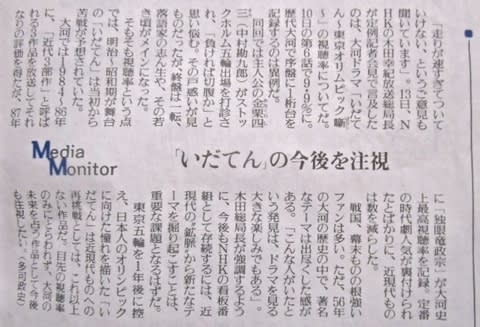 「いだてん」の今後を注視
Media
Monitor
「走りが速すぎてついて
いけない、というご意見も
聞いています」。13日、N
HKの木田幸紀放送総局長
が定例記者会見で言及した
のは、大河ドラマ「いだて
ん～東京オリムピック噺
～」の視聴率についてだ。
10日の第6話で9・9％に。
歴代大河で序盤に1桁台を
記録するのは異例だ。
同回では主人公の金栗四
三（中村勘九郎）がストッ
クホルム五輪出場を打診さ
れ、「負ければ切腹か」と
思い悩む。その戸惑いが見
ものだったが、終盤は一転、
落語家の志ん生や、その若
き頃がメインになった。
そもそも視聴率という点
では、明治～昭和期が舞台
の「いだてん」は当初から
苦戦が予想されていた。
大河では1984～86年
に、「近代3部作」と呼ば
れる3作品を放送してそれ
なりの評価を得たが、87年
に「独眼竜政宗」が大河史
上最高視聴率を記録。定番
の時代劇人気が裏付けられ
たとばかりに、近現代もの
は数を減らした。
戦国、幕末ものの根強い
ファンは多い。ただ、56年
の大河の歴史の中で、著名
なテーマは出尽くした感が
ある。「こんな人がいたと
いう発見は、ドラマを見る
大きな楽しみでもある」。
木田総局長が強調するよう
に、今後もNHKの看板番
組として存続するには、近
現代の〝鉱脈〟から新たなテ
ーマを掘り起こすことは、
重要な課題となるはずだ。
東京五輪を1年後に控
え、日本人のオリンピック
に向けた憧れを描いた「い
だてん」は近現代ものへの
再挑戦としては、これ以上
ない作品だ。目先の視聴率
のみにとらわれず、大河の
未来を占う作品として今後
も注視したい。（多可政史）